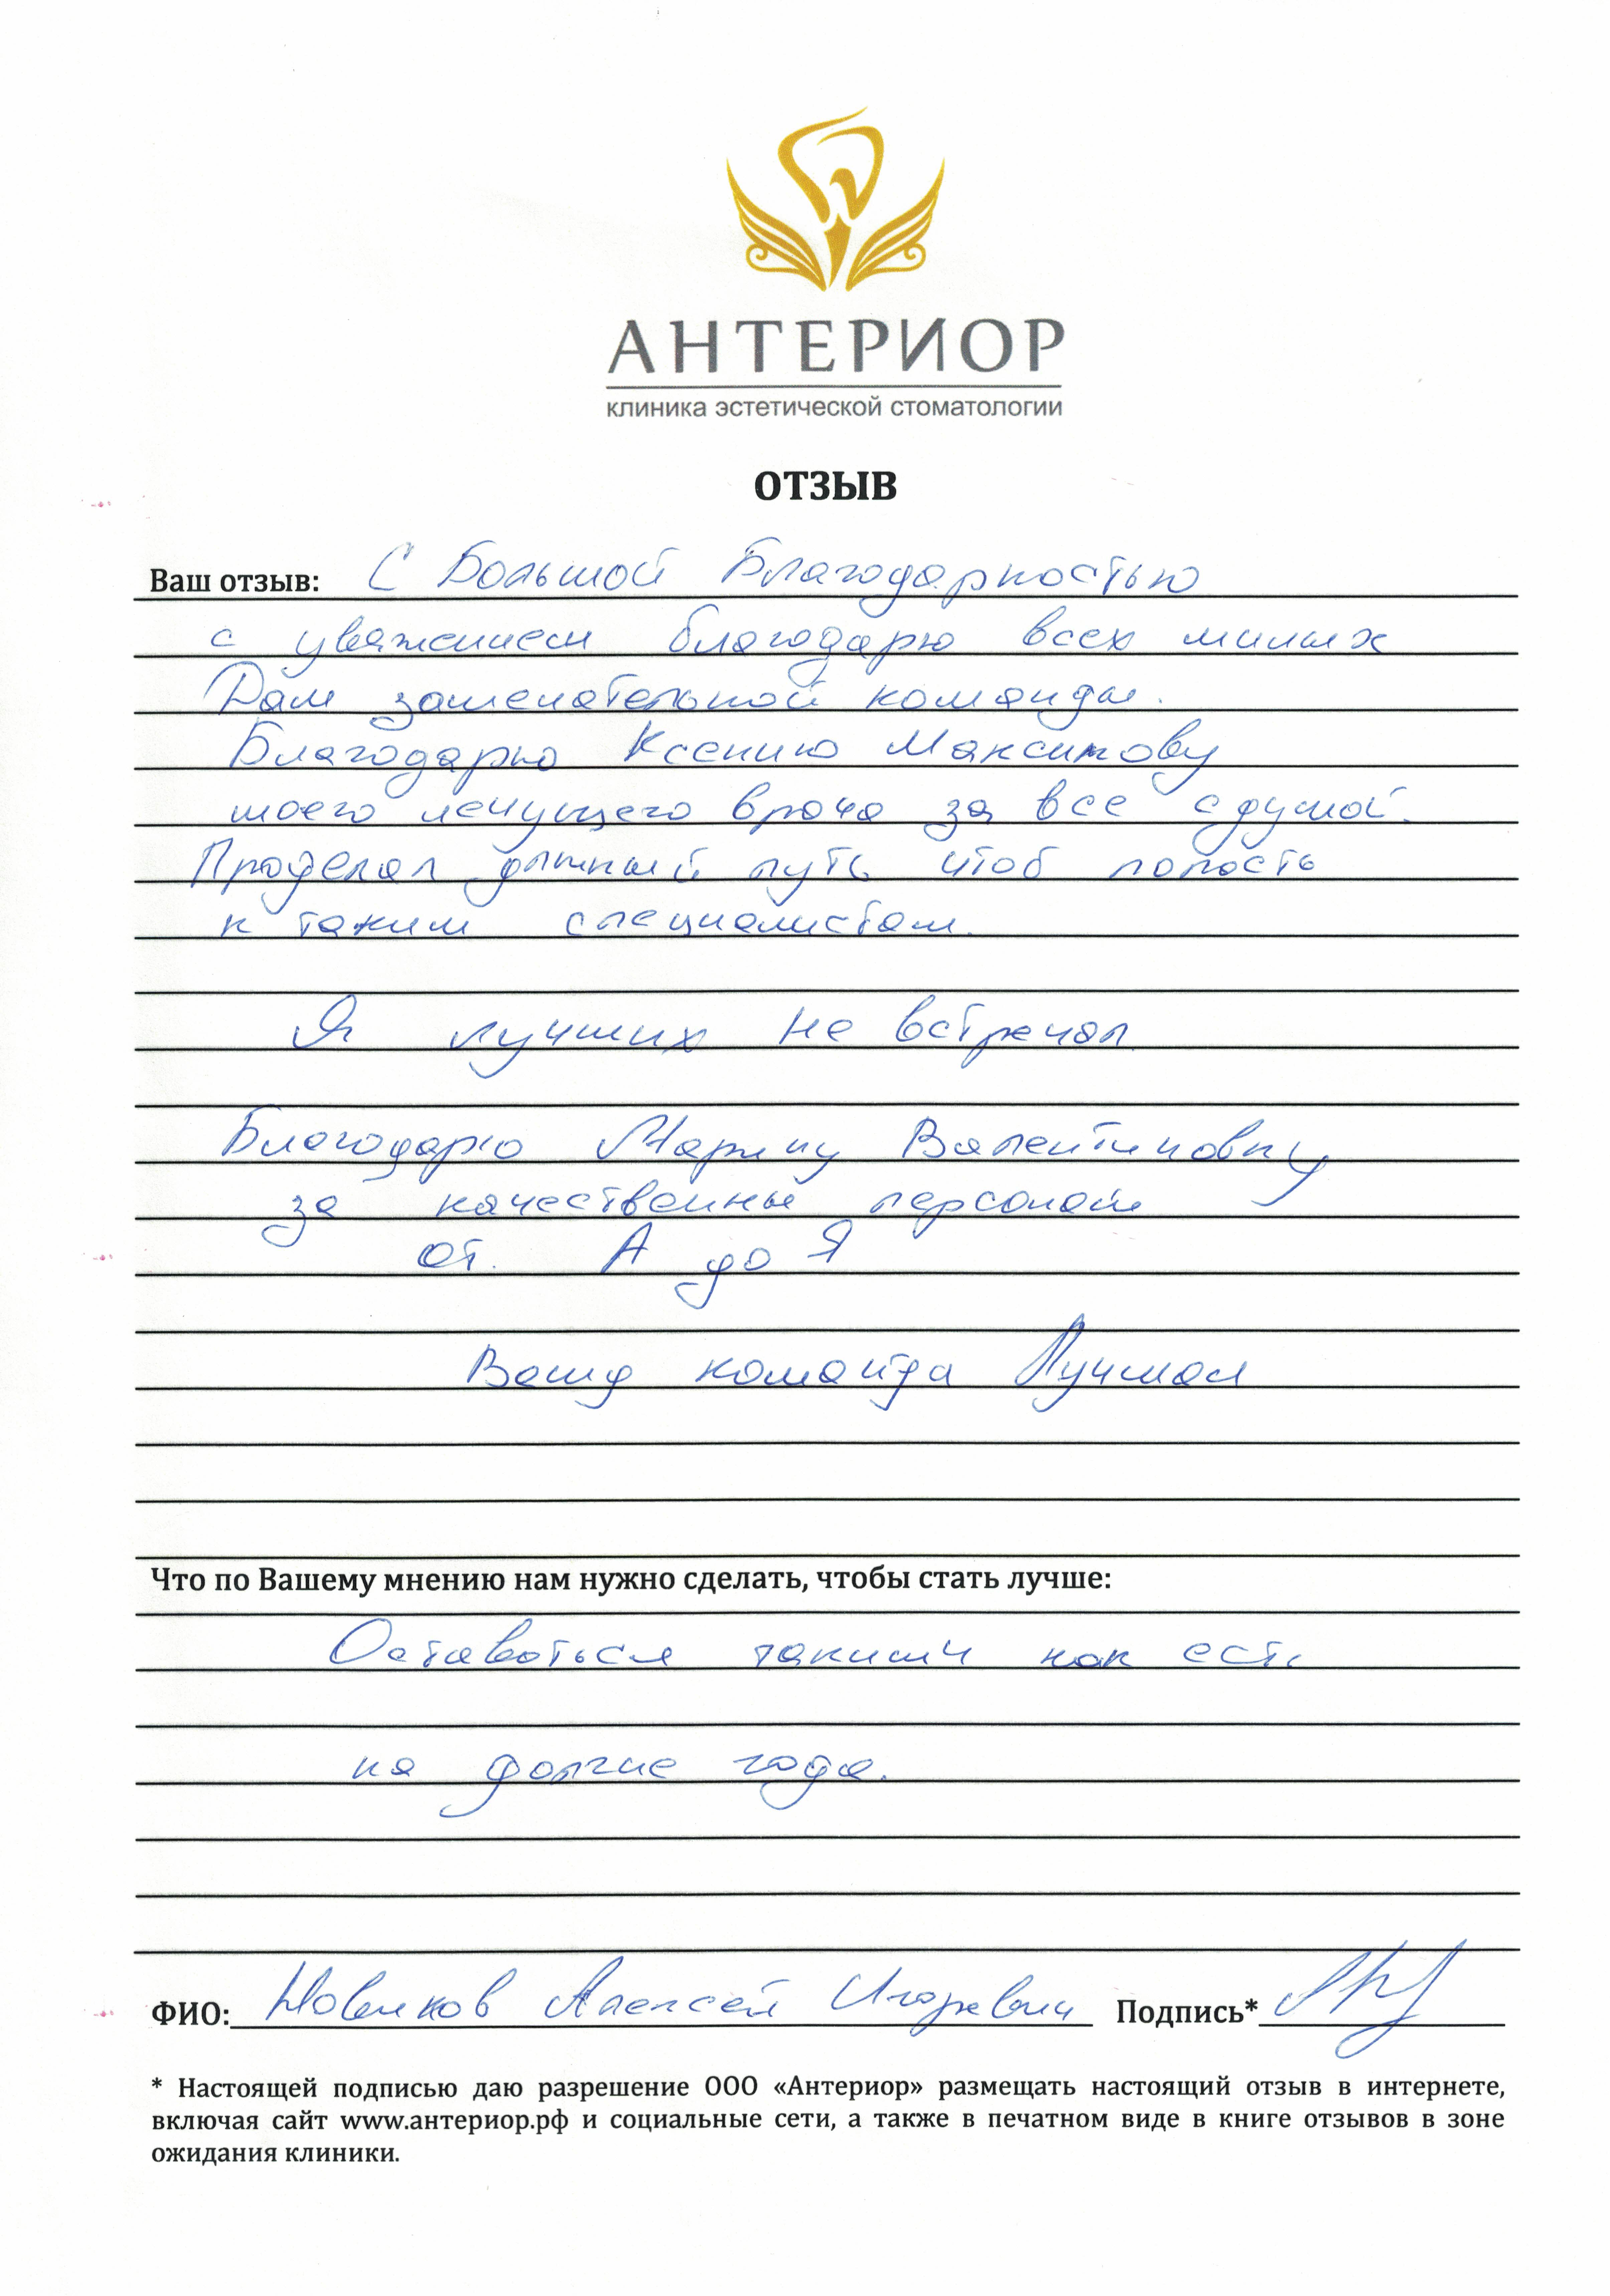 АНТЕРИОР
клиника эстетической стоматологии
ОТЗЫВ
Ваш отзыв: С Большой Благодарностью
с уважением благодарю всех милых
Дам замечательной команды.
Благодарю Ксению Максимову
моего лечущего врача за все с душой.
Проделал длинный путь чтоб попасть
к таким специалистам.
Я лучших не встречал
Благодарю Марину Валентиновну
за качественны персонал
от. А до Я
Ваша команда Лучшая
Что по Вашему мнению нам нужно сделать, чтобы стать лучше:
Оставаться такими как есть
на долгие года.
ФИО: Новиков Алексей Игоревич Подпись*
* Настоящей подписью даю разрешение ООО «Антериор» размещать настоящий отзыв в интернете,
включая сайт www.антериор.рф и социальные сети, а также в печатном виде в книге отзывов в зоне
ожидания клиники.